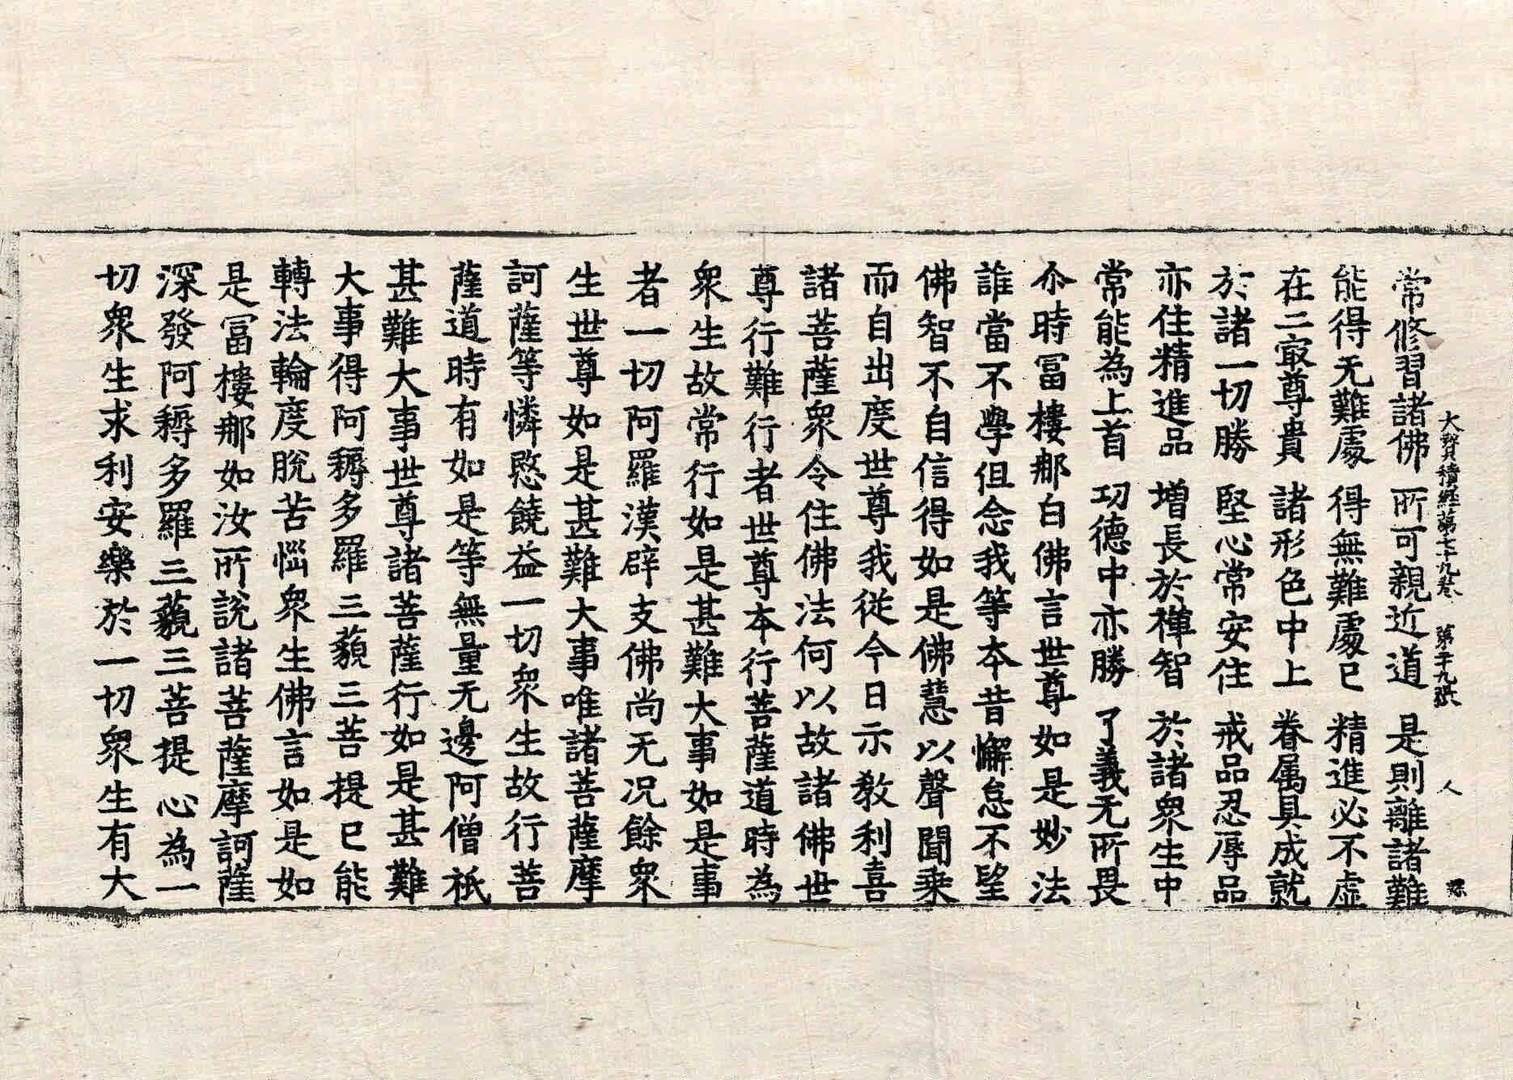 大寶積經第七十九卷　第二十九張　人
常修習諸佛　所可親近道　是則離諸難
能得无難處　得無難處已　精進必不虛
在二㝡尊貴　諸形色中上　眷属具成就
於諸一切勝　堅心常安住　戒品忍辱品
亦住精進品　增長於禪智　於諸衆生中
常能為上首　功德中亦勝　了義无所畏
尒時冨樓那白佛言世尊如是妙法
誰當不學但念我等本昔懈怠不望
佛智不自信得如是佛慧以聲聞乘
而自出度世尊我從今日示教利喜
諸菩薩衆令住佛法何以故諸佛世
尊行難行者世尊本行菩薩道時為
衆生故常行如是甚難大事如是事
者一切阿羅漢辟支佛尚无况餘衆
生世尊如是甚難大事唯諸菩薩摩
訶薩等憐愍饒益一切衆生故行菩
薩道時有如是等無量无邊阿僧祇
甚難大事世尊諸菩薩行如是甚難
大事得阿耨多羅三藐三菩提已能
轉法輪度脫苦惱衆生佛言如是如
是冨樓那如汝所說諸菩薩摩訶薩
深發阿耨多羅三藐三菩提心為一
切衆生求利安樂於一切衆生有大